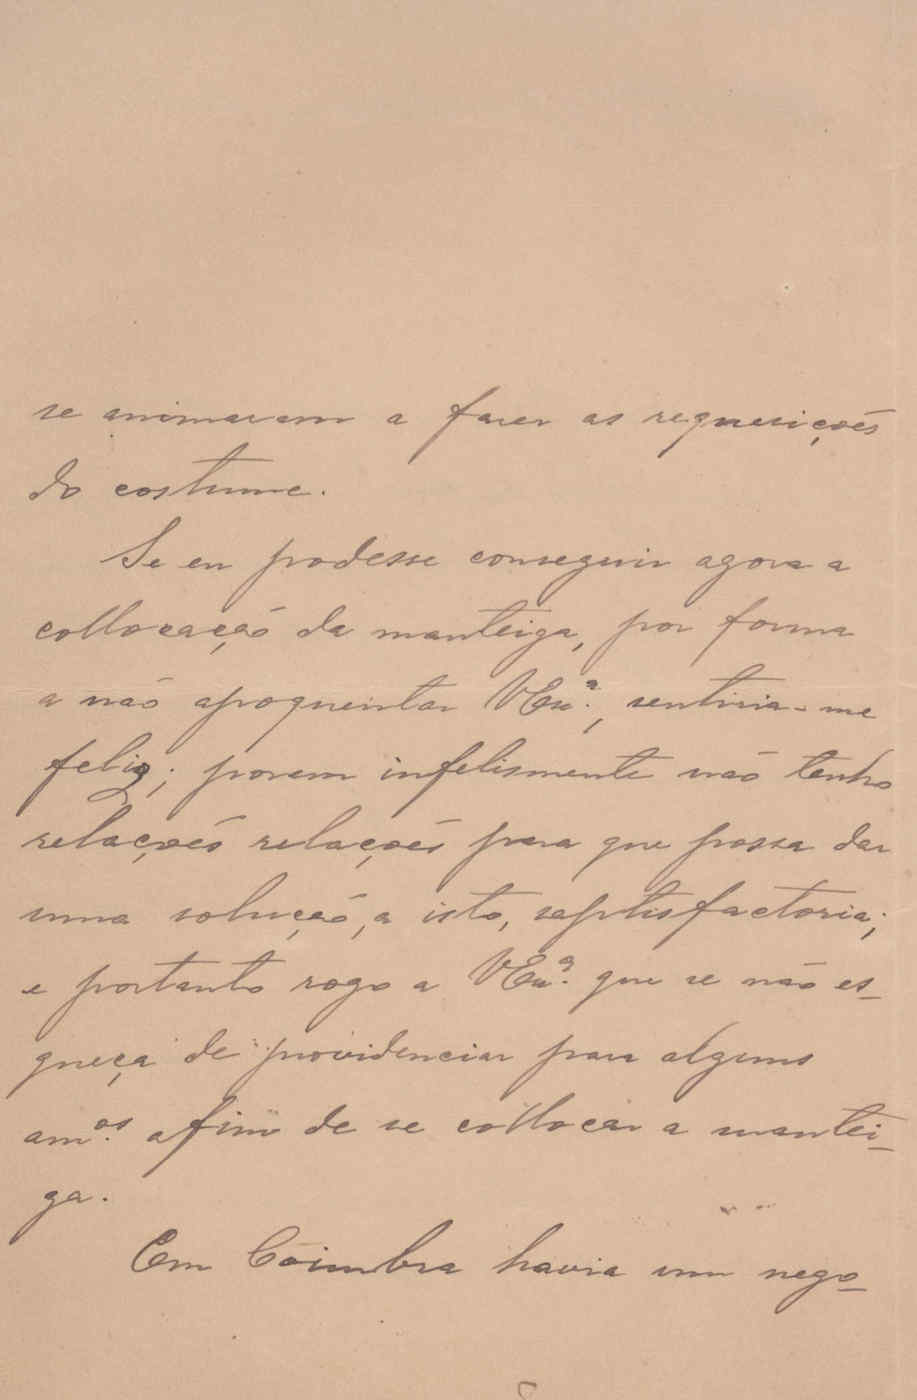 se animavam a fazer as requesições
do costume.
Se eu podesse conseguir agora a
collocação da manteiga, por forma
a não apoquentar VExª., sentiria-me
feliz; porem infelismente não tenho
relações relações para que possa dar
uma solução, a isto, saptisfactoria;
e portanto rogo a VExª. que se não es-
queça de providenciar para alguns
am.os afim de se collocar a mantei-
ga.
Em Coimbra havia um nego-